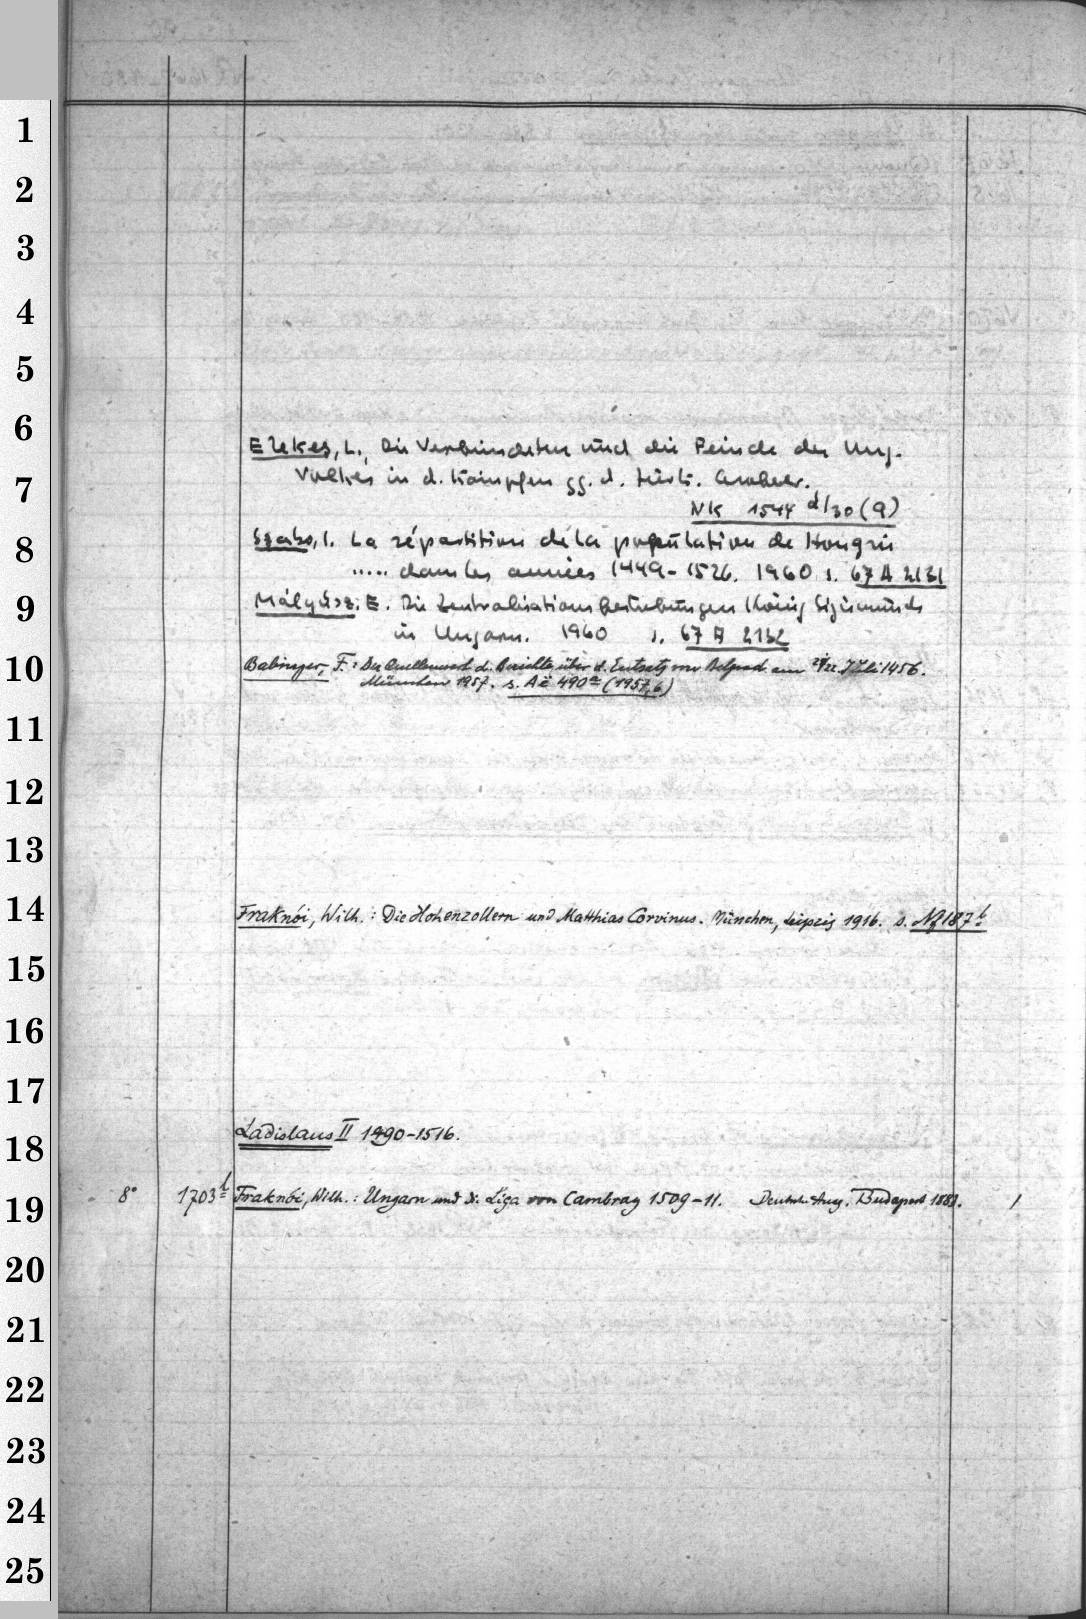 1
2
3
4
5
6
Elekes, L., Die Verbündeten und die Feinde des Ung.
Volkes in d. Kämpfen gg. d. türk. Erober.
7
NK 1544 d/30 (9)
8
Szabo, I. La répartition de la population de Hongrie
..... dans les années 1449-1526. 1960 s. 67 A 2131
9
Mályusz, E. Die Zentralisationsbestrebungen König Sigismunds
in Ungarn. 1960 s. 67 A 2132
10
Babinger, F.: Der Quellenwert d. Berichte über d. Entsatz von Belgrad am 21/22. Juli 1456.
München 1957. s. Ac 490a (1957,6)
11
12
13
14
Fraknói, Wilh.: Die Hohenzollern und Matthias Corvinus. München, Leipzig 1916. s. 187 b
15
16
17
18
Ladislaus II 1490-1516.
19
8° 1703 b Fraknói, Wilh.: Ungarn und d. Liga von Cambray 1509-11. Deutsche Ausg. Budapest 1883. 1
20
21
22
23
24
25